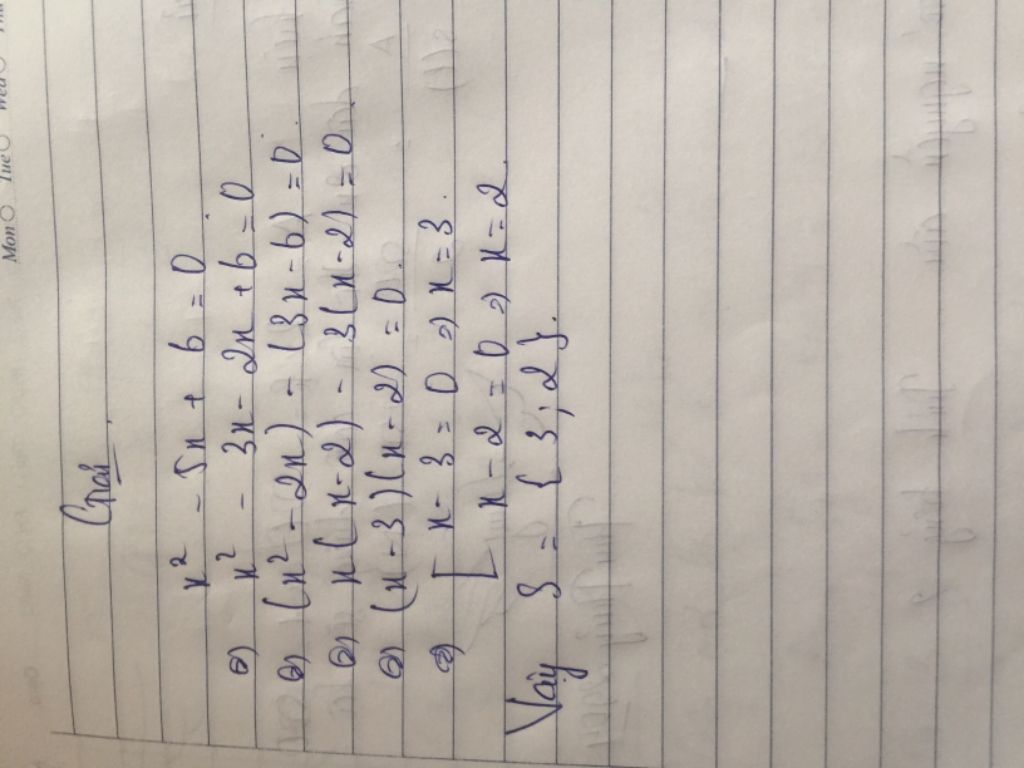 Mon Tue Wed
Giải
x² - 5x + 6 = 0
⇔ x² - 3x - 2x + 6 = 0
⇔ (x² - 2x) - (3x - 6) = 0.
⇔ x(x - 2) - 3(x - 2) = 0.
⇔ (x - 3)(x - 2) = 0.
⇔ [ x - 3 = 0 ⇒ x = 3.
x - 2 = 0 ⇒ x = 2.
Vậy S = { 3 ; 2 }.